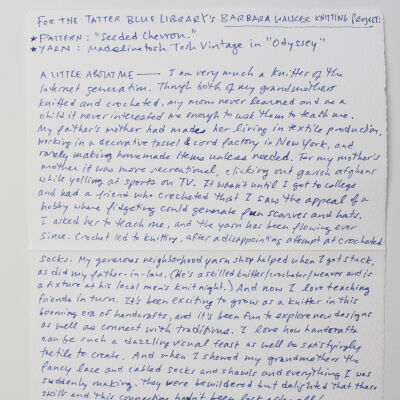 FOR THE TATTER BLUE LIBRARY'S BARBARA WALKER KNITTING PROJECT:
★PATTERN: "Seeded Chevron."
★YARN: Madelinetosh Tosh Vintage in "Odyssey"
A LITTLE ABOUT ME — I am very much a knitter of the
Internet generation. Though both of my grandmothers
knitted and crocheted, my mom never learned and as a
child it never interested me enough to ask them to teach me.
My father's mother had made her living in textile production,
working in a decorative tassel & cord factory in New York, and
rarely making homemade items unless needed. For my mother's
mother it was more recreational, clicking out garish afghans
while yelling at sports on TV. It wasn't until I got to college
and had a friend who crocheted that I saw the appeal of a
hobby where fidgeting could generate fun scarves and hats.
I asked her to teach me, and the yarn has been flowing ever
since. Crochet led to knitting, after a disappointing attempt at crocheted
socks. My generous neighborhood yarn shop helped when I got stuck,
as did my father-in-law. (He's a skilled knitter/crocheter/weaver and is
a fixture at his local men's knit night.) And now I love teaching
friends in turn. It's been exciting to grow as a knitter in this
booming era of handcrafts, and it's been fun to explore new designs
as well as connect with traditions. I love how handcrafts
can be such a dazzling visual feast as well as satisfyingly
tactile to create. And when I showed my grandmothers the
fancy lace and cabled socks and shawls and everything I was
suddenly making, they were bewildered but delighted that these
skills and this connection hadn't been lost after all!